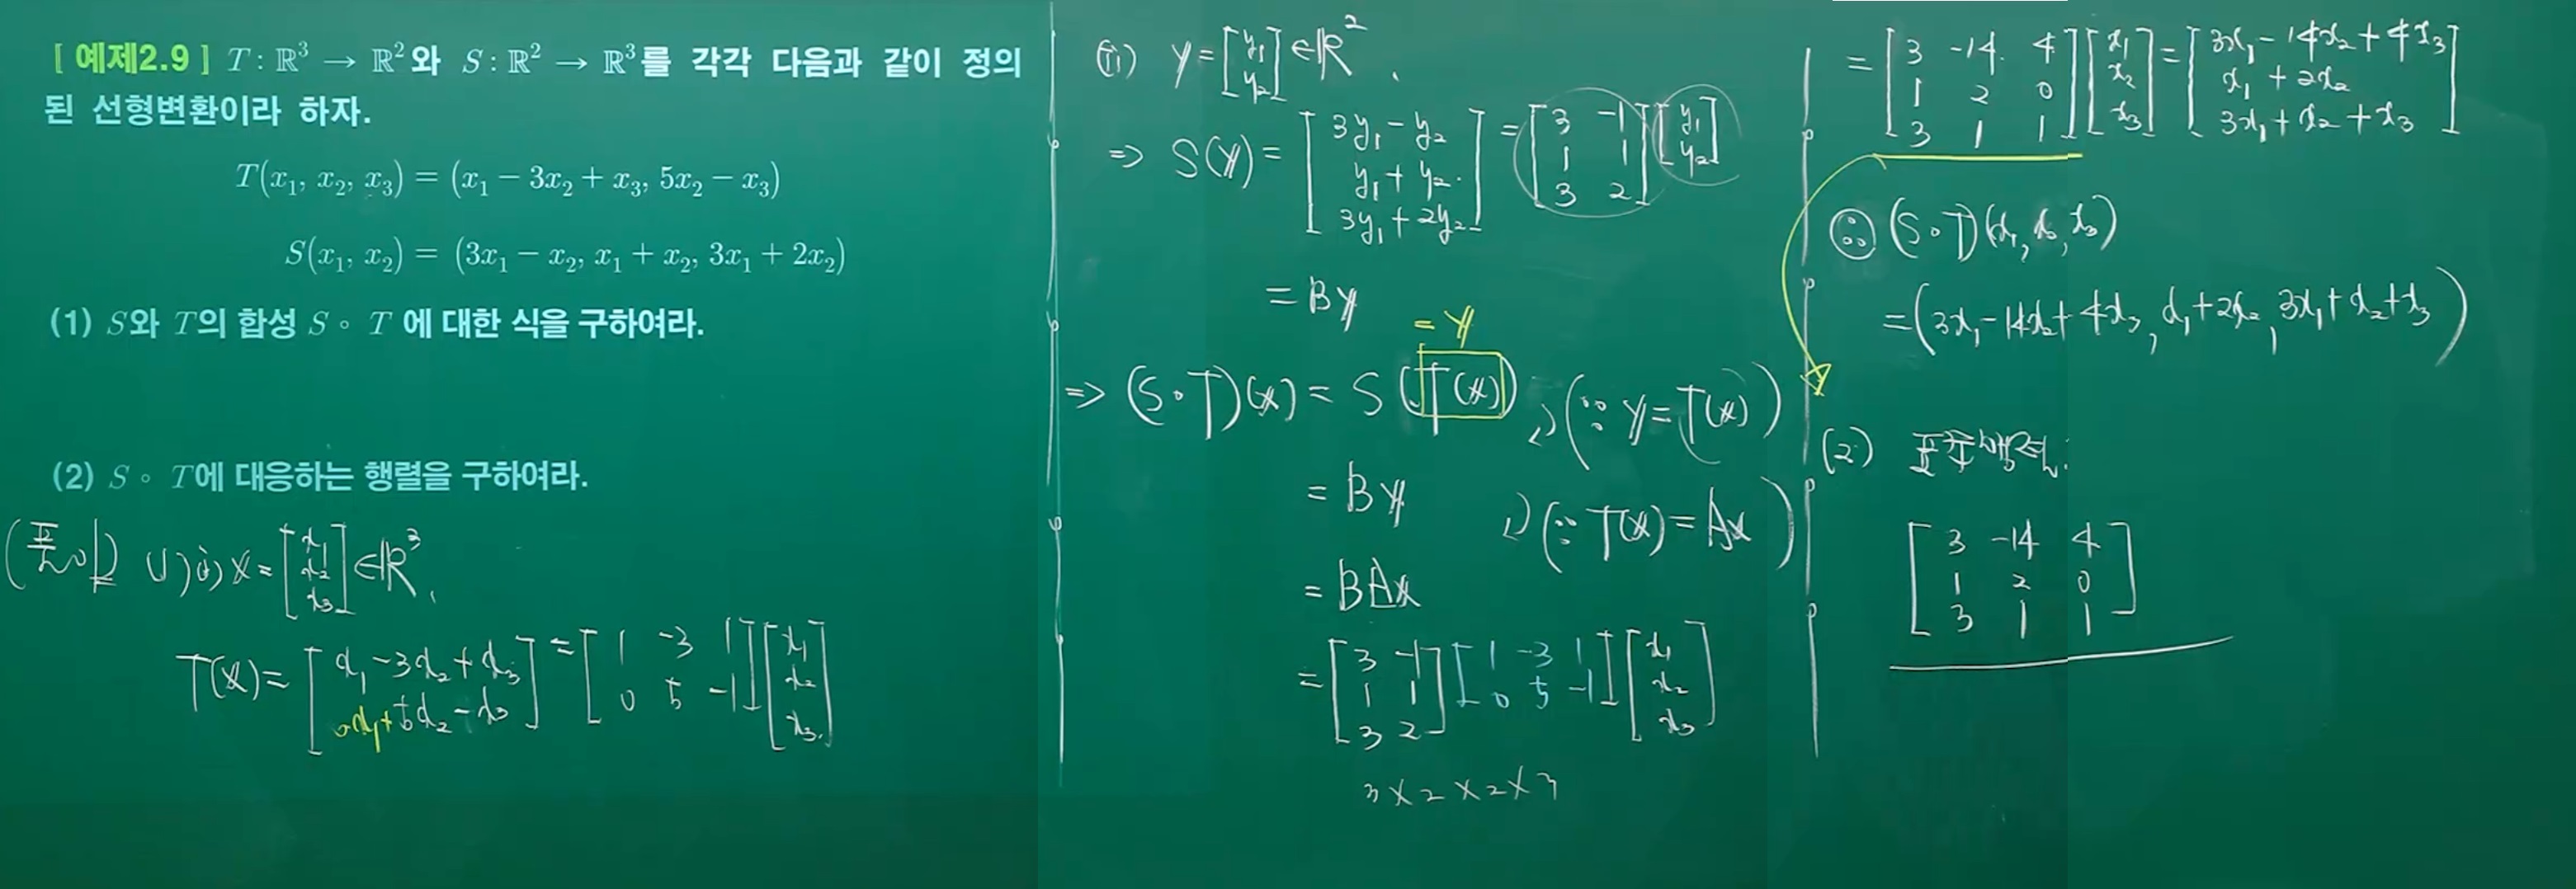 [ 예제2.9 ] T : ℝ³ → ℝ²와 S : ℝ² → ℝ³를 각각 다음과 같이 정의
된 선형변환이라 하자.
T(x₁, x₂, x₃) = (x₁ − 3x₂ + x₃, 5x₂ − x₃)
S(x₁, x₂) = (3x₁ − x₂, x₁ + x₂, 3x₁ + 2x₂)
(1) S와 T의 합성 S ∘ T 에 대한 식을 구하여라.
(2) S ∘ T에 대응하는 행렬을 구하여라.
(풀이) (1) (i) x = [x₁; x₂; x₃] ∈ ℝ³,
T(x) = [x₁ − 3x₂ + x₃; 0x₁ + 5x₂ − x₃] = [1 −3 1; 0 5 −1][x₁; x₂; x₃]
(ii) y = [y₁; y₂] ∈ ℝ²,
⇒ S(y) = [3y₁ − y₂; y₁ + y₂; 3y₁ + 2y₂] = [3 −1; 1 1; 3 2][y₁; y₂]
= By
= y
⇒ (S∘T)(x) = S(T(x)) (∵ y = T(x))
= By (∵ T(x) = Ax)
= BAx
= [3 −1; 1 1; 3 2][1 −3 1; 0 5 −1][x₁; x₂; x₃]
3×2×2×3
= [3 −14 4; 1 2 0; 3 1 1][x₁; x₂; x₃] = [3x₁ − 14x₂ + 4x₃; x₁ + 2x₂; 3x₁ + x₂ + x₃]
∴ (S∘T)(x₁, x₂, x₃)
= (3x₁ − 14x₂ + 4x₃, x₁ + 2x₂, 3x₁ + x₂ + x₃)
(2) 표준행렬:
[3 −14 4; 1 2 0; 3 1 1]